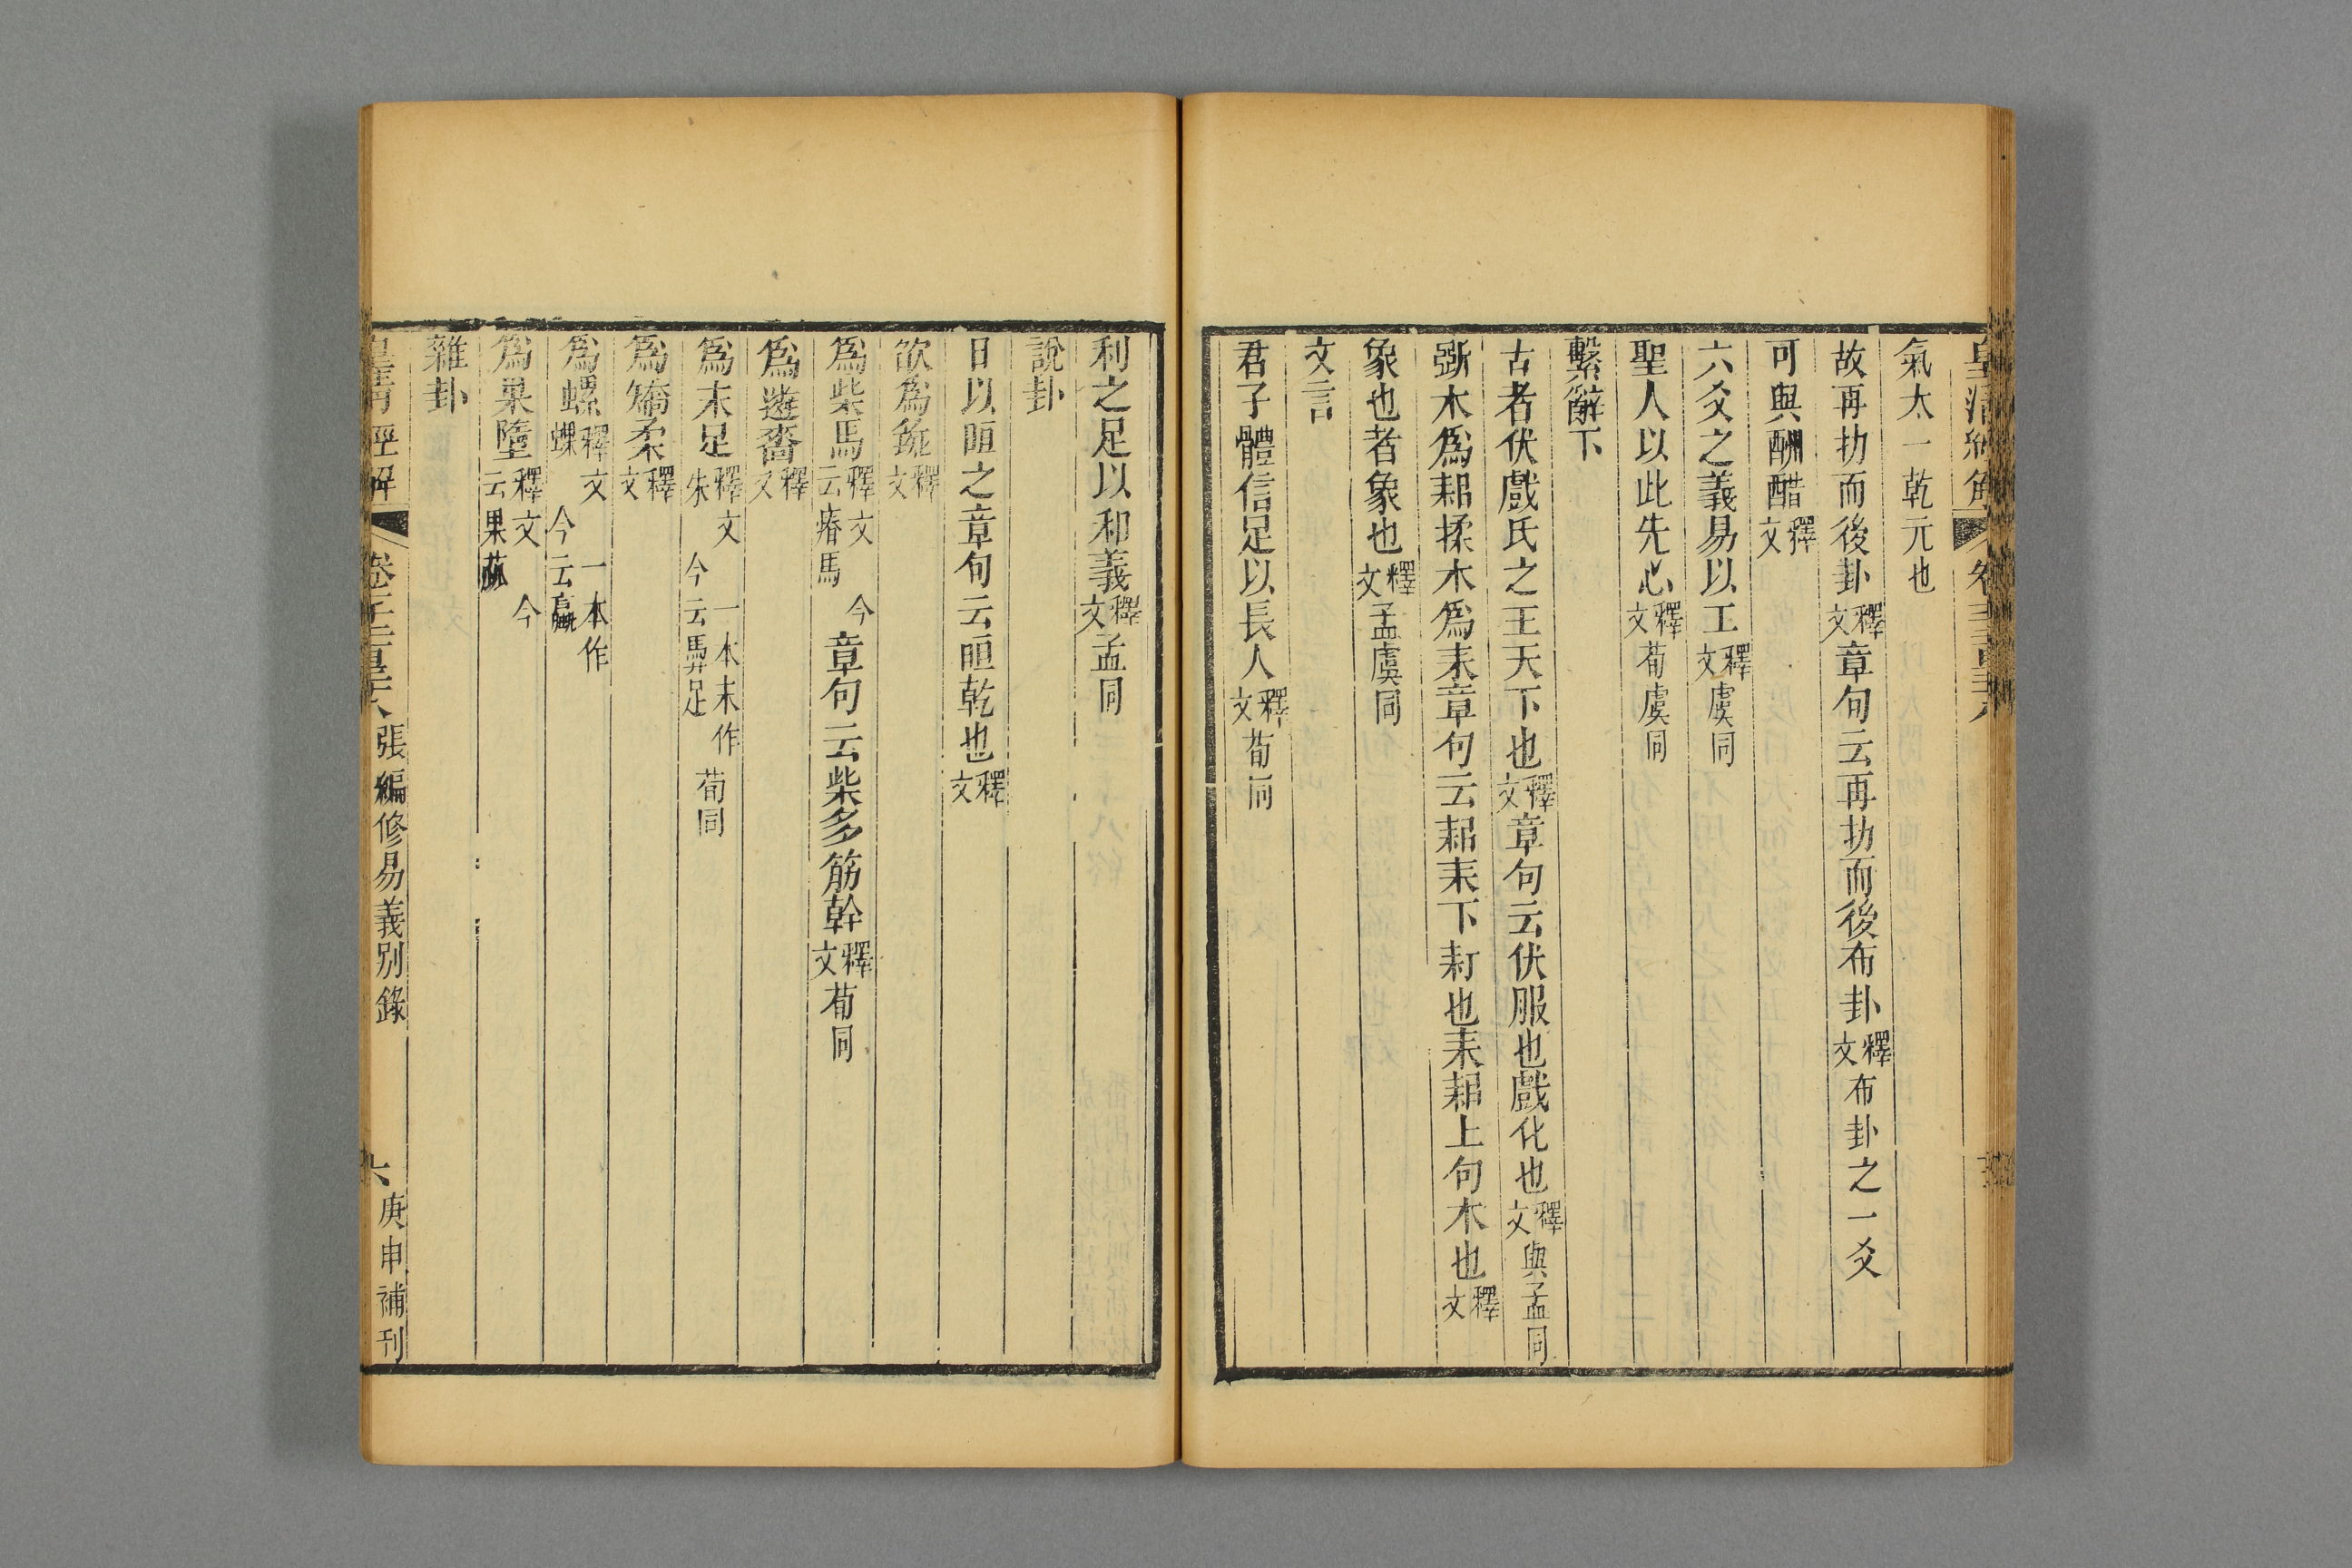 皇清經解
氣太一乾元也
故再扐而後卦釋文章句云再扐而後布卦釋文布卦之一爻
可與酬醋釋文
六爻之義易以工釋文虞同
聖人以此先心釋文荀虞同
繫辭下
古者伏戲氏之王天下也釋文章句云伏服也戲化也釋文與孟同
斲木爲耜揉木爲耒章句云耜耒下耓也耒耜上句木也釋文
象也者象也釋文孟虞同
文言
君子體信足以長人釋文荀同
利之足以和義釋文孟同
說卦
日以晅之章句云晅乾也釋文
欲爲釋文
爲柴馬釋文今云瘠馬章句云柴多筋幹釋文荀同
爲遴嗇釋文
爲末足釋文一本末作朱今云馵足荀同
爲矯柔釋文
爲螺釋文一本作蜾今云蠃
爲果墮釋文今云果蓏
雜卦
皇清經解
張編修易義別錄
六
庚申補刊